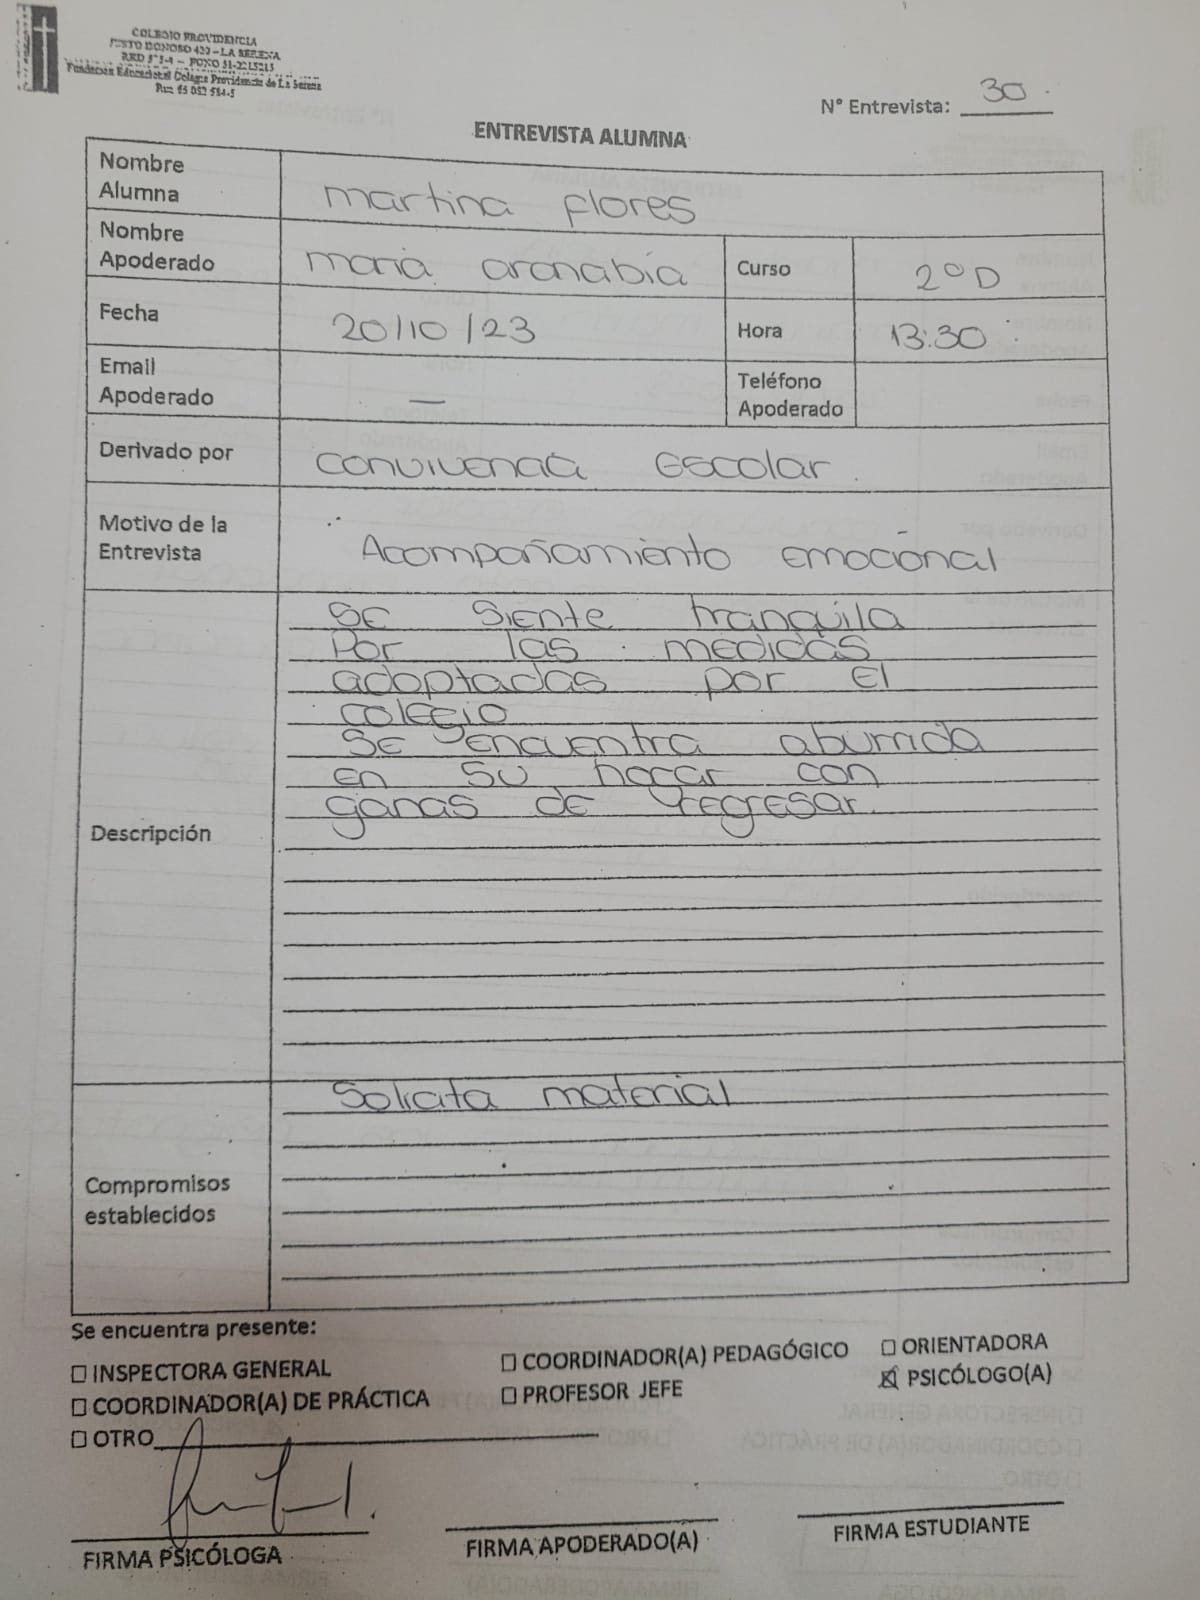 COLEGIO PROVIDENCIA
JUSTO DONOSO 420 - LA SERENA
Fundación Educacional Colegio Providencia de La Serena
N° Entrevista: 30
ENTREVISTA ALUMNA
Nombre Alumna martina flores
Nombre Apoderado maria aronabia Curso 2°D
Fecha 20/10/23 Hora 13:30
Email Apoderado — Teléfono Apoderado
Derivado por convivencia Escolar
Motivo de la Entrevista Acompañamiento emocional
Descripción
SE SIENTE tranquila
Por las medidas
adoptadas por El
colegio
SE ENCUENTRA aburrida
en su hogar con
ganas de regresar.
Compromisos establecidos
Solicita material
Se encuentra presente:
☐ INSPECTORA GENERAL ☐ COORDINADOR(A) PEDAGÓGICO ☐ ORIENTADORA
☐ COORDINADOR(A) DE PRÁCTICA ☐ PROFESOR JEFE ☒ PSICÓLOGO(A)
☐ OTRO
FIRMA PSICÓLOGA FIRMA APODERADO(A) FIRMA ESTUDIANTE